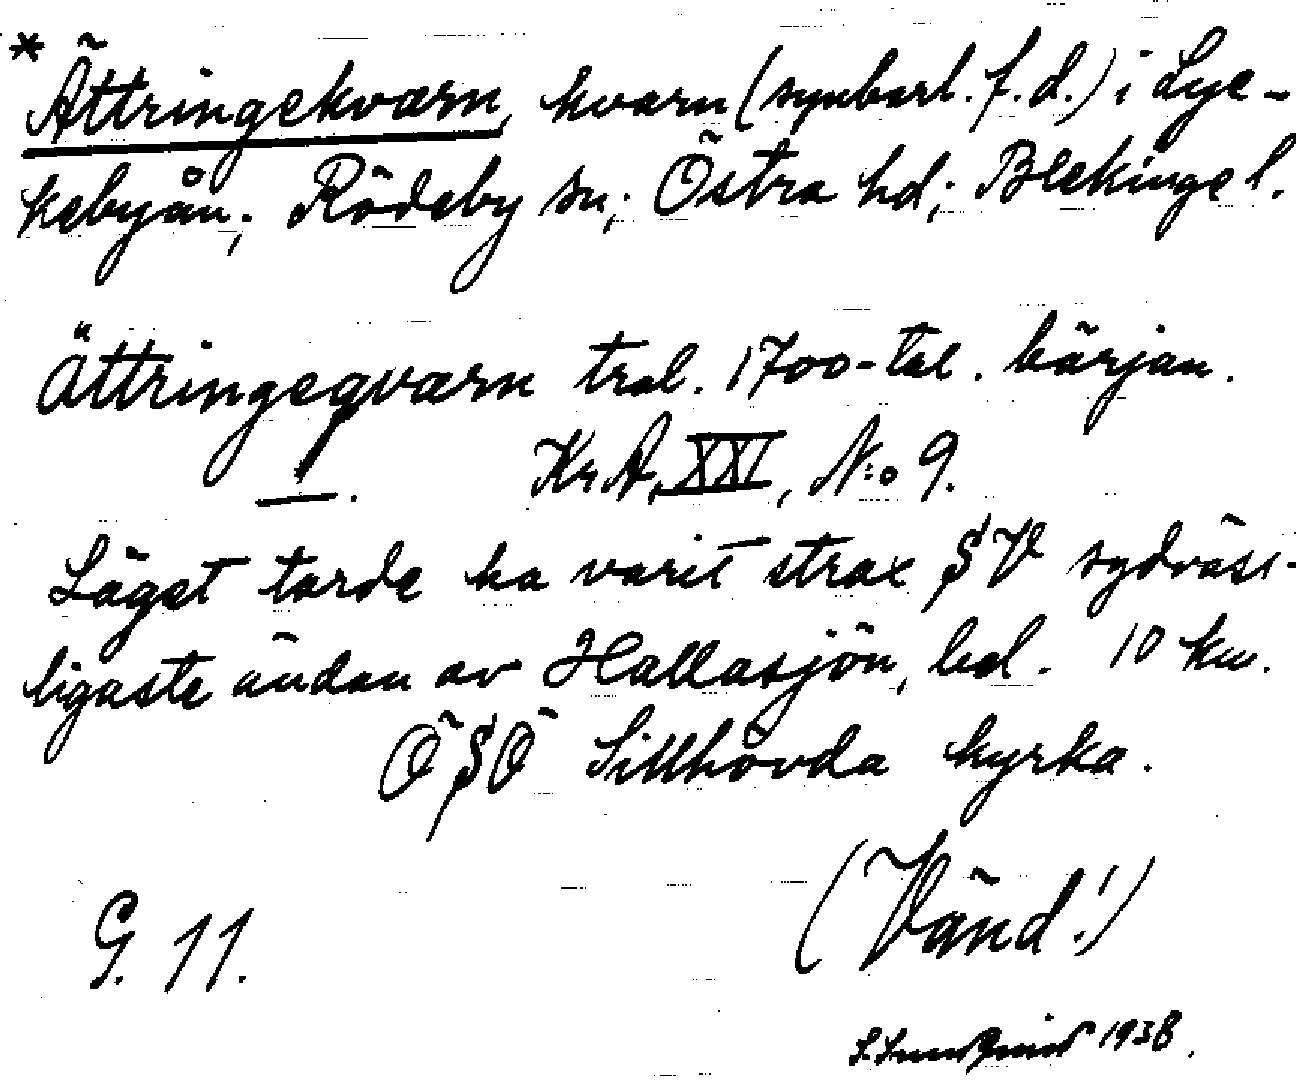 * Ättringekvarn, kvarn (synbarl. f. d.) i Lyc-
kebyån; Rödeby sn; Östra hd; Blekinge l.
Ättringeqvarn trol. 1700-tal. början.
Kr.A, XXI, N:o 9.
Läget torde ha varit strax SV sydväst-
ligaste ändan av Hallasjön, bel. 10 km.
Ö S Ö Sillhövda kyrka.
(Vänd!)
G. 11.
S. Lundqvist 1938.